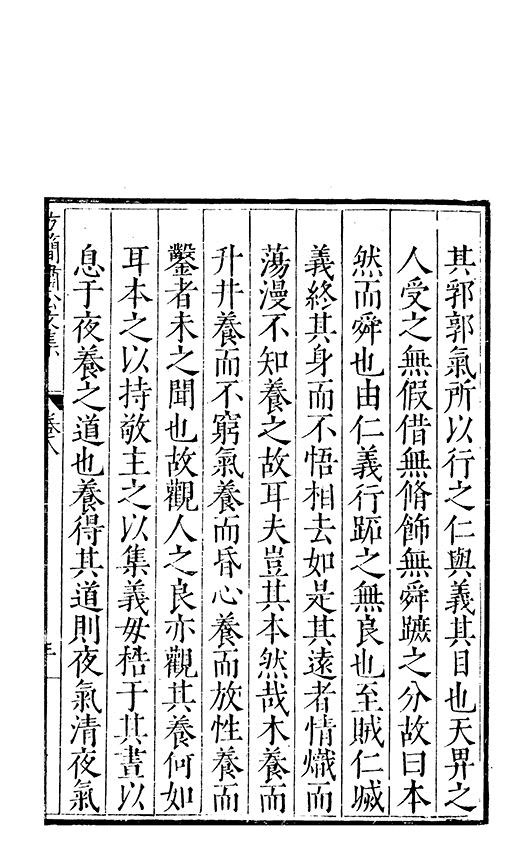 其郛郭氣所以行之仁與義其目也天畀之
人受之無假借無脩飾無舜蹠之分故曰本
然而舜也由仁義行跖之無良也至賊仁
義終其身而不悟相去如是其遠者情熾而
蕩漫不知養之故耳夫豈其本然哉木養而
升井養而不窮氣養而昏心養而放性養而
鑿者未之聞也故觀人之良亦觀其養何如
耳本之以持敬主之以集義毋梏于其晝以
息于夜養之道也養得其道則夜氣清夜氣
簡肅公文集
卷八